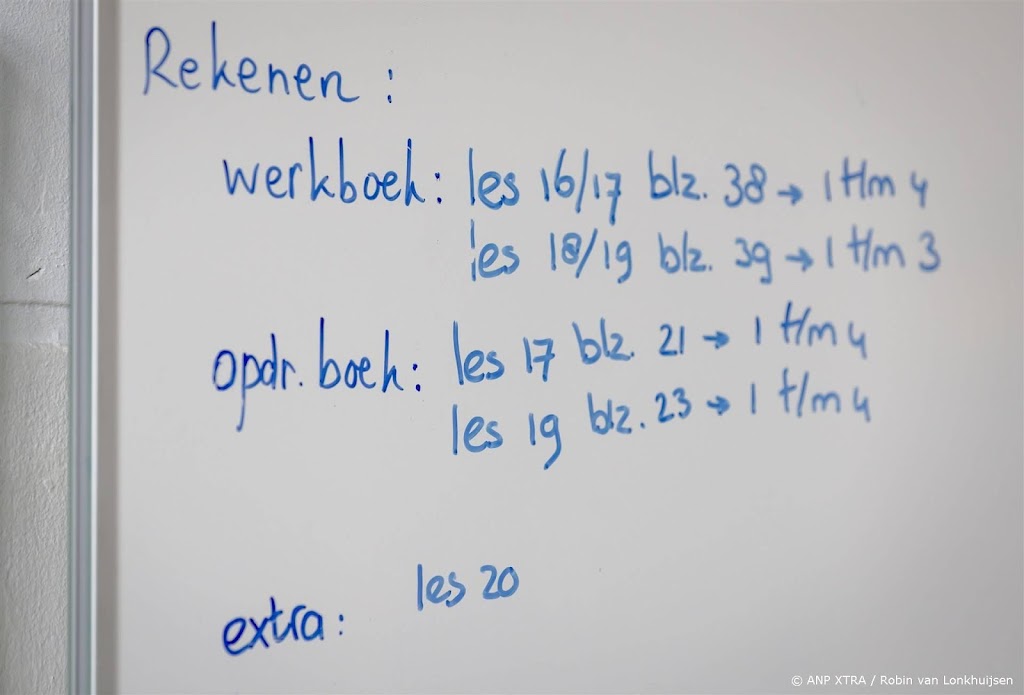 Rekenen :
werkboek: les 16/17 blz. 38 → 1 t/m 4
les 18/19 blz. 39 → 1 t/m 3
opdr. boek: les 17 blz. 21 → 1 t/m 4
les 19 blz. 23 → 1 t/m 4
extra: les 20
© ANP XTRA / Robin van Lonkhuijsen